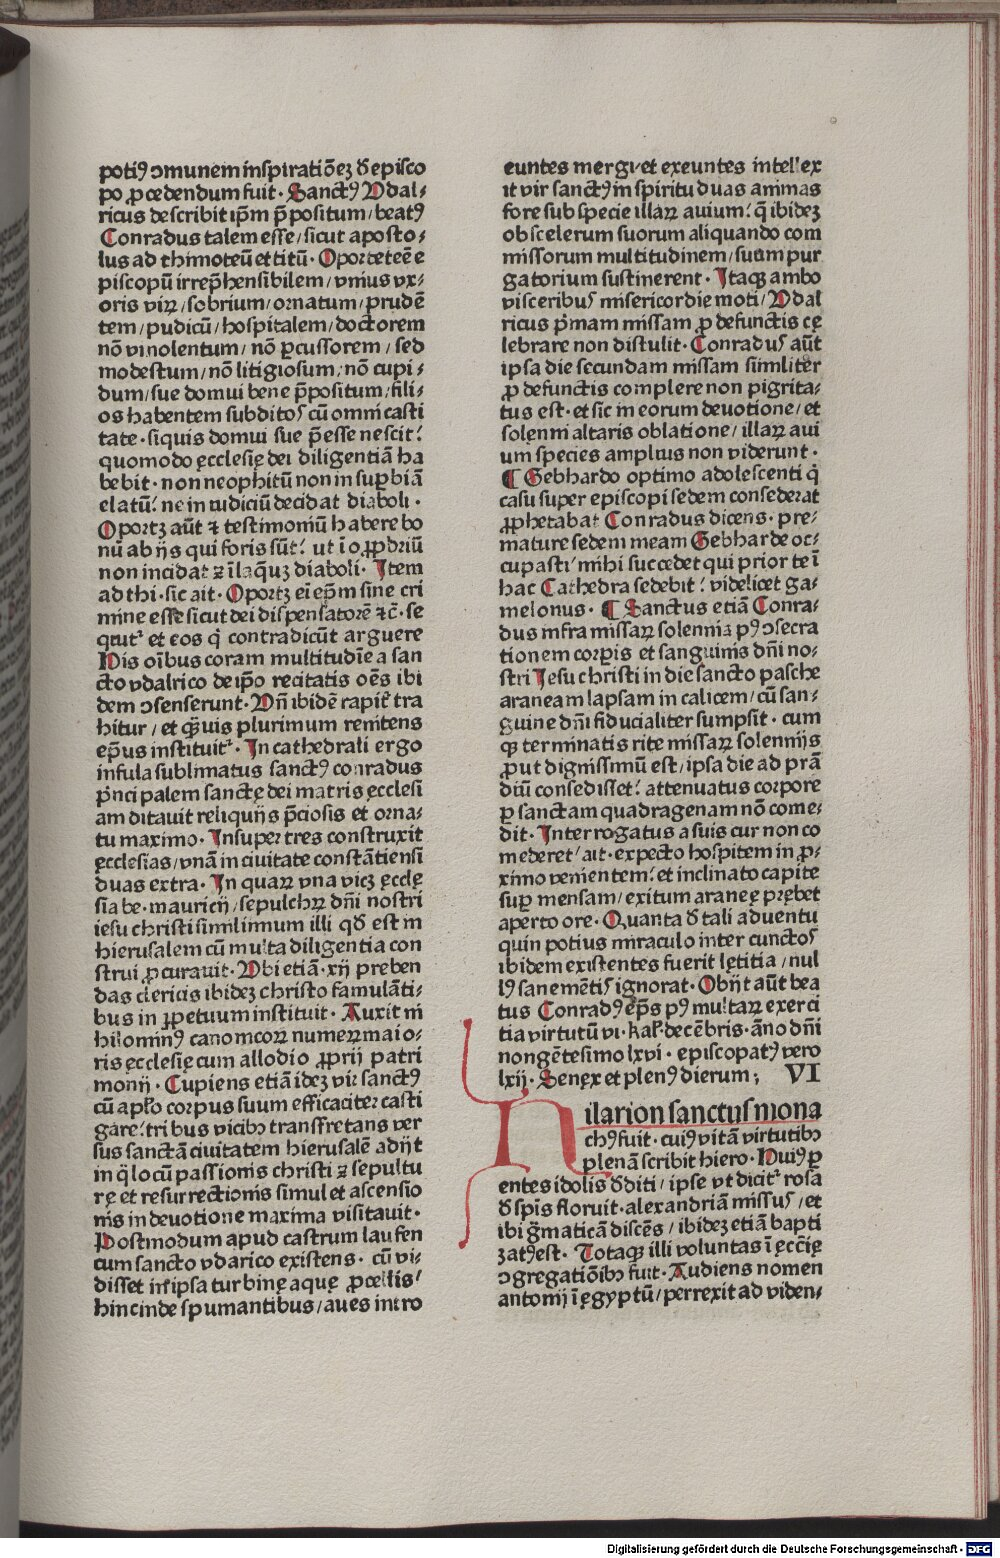 potiꝰ ↄmunem inſpiratiōeꝫ ꝺ̄ epiſco
po ꝓcedendum fuit · Sanctꝰ Vdal⸗
ricus deſcribit ip̄m p̄poſitum / beatꝰ
Conradus talem eſſe / ſicut apoſto⸗
lus ad thimoteū et titū · Oportet eē e
piſcopū irrep̄henſibilem / vnius vx⸗
oris viꝝ / ſobrium / ornatum / prudē
tem / pudicū / hoſpitalem / doctorem
nō vinolentum / nō ꝑcuſſorem / ſed
modeſtum / nō litigioſum / nō cupi⸗
dum / ſue domui bene p̄poſitum / fili⸗
os habentem ſubditoſ cū omni caſti
tate · ſiquis domui ſue p̄eſſe neſcit?
quomodo ęccleſię dei diligentiā ha
bebit · non neophitū non in ſuꝑbiā
elatū? ne in iudiciū decidat diaboli ·
Oportꝫ aūt ⁊ teſtimoniū habere bo
nū ab ijs qui foris ſūt? ut ī oꝓpbriū
non incidat ⁊ ī laq̄uꝫ diaboli · Item
ad thi · ſic ait · Oportꝫ ei ep̄m ſine cri
mine eſſe ſicut dei diſpenſatorē ⁊c̄ · ſe
qtutᷣ et eos q̇ contradicūt arguere
His oībus coram multitudīe a ſan
cto vdalrico de ip̄o recitatis oēs ibi
dem ↄſenſerunt · Dn̄ ibidē rapitᷣ tra
hitur / et q̄uis plurimum renitens
ep̄us inſtituitᷣ · In cathedrali ergo
infula ſublimatus ſanctꝰ conradus
p̄ncipalem ſanctę dei matris ęccleſi
am ditauit reliquijs p̄cioſis et orna⸗
tu maximo · Inſuper tres conſtruxit
ęccleſias / vnā in ciuitate conſtātienſi
duas extra · In quaꝝ vna vicꝫ ęcclę
ſia be · mauricij / ſepulchꝝ dn̄i noſtri
ieſu chriſti ſimilimum illi qd̄ eſt in
hieruſalem cū multa diligentia con
ſtrui ꝓcurauit · Vbi etiā · xij preben
das clericis ibidez chriſto famulāti⸗
bus in ꝑpetuum inſtituit · Auxit ni
hilominꝰ canonicoꝝ numeꝝ maio⸗
ris ęccleſię cum allodio ꝓprij patri
monij · Cupiens etiā idez vir ſanctꝰ
cū apl̄o corpus ſuum efficaciter caſti
gare? tribus vicibꝫ tranſfretans ver
ſus ſanctā ciuitatem hieruſalē adijt
in q̇ locū paſſionis chriſti ⁊ ſepultu
rę et reſurrectionis ſimul et aſcenſio
nis in deuotione maxima viſitauit ·
Poſtmodum apud caſtrum laufen
cum ſancto vdarico exiſtens · cū vi⸗
diſſet in ipſa turbinę aquę ꝓcellis /
hincinde ſpumantibus / aues intro
euntes mergi · et exeuntes intellex
it vir ſanctꝰ in ſpiritu duas animas
fore ſub ſpecie illaꝝ auium? q̄ ibideꝫ
ob ſcelerum ſuorum aliquando com
miſſorum multitudinem / ſuum pur
gatorium ſuſtinerent · Itaqꝫ ambo
viſceribuſ miſericordie moti / Vdal
ricus p̄mam miſſam ꝓ defunctis cę
lebrare non diſtulit · Conraduſ aūt
ipſa die ſecundam miſſam ſimiliter
ꝓ defunctis complere non pigrita⸗
tus eſt · et ſic in eorum deuotione / et
ſolenni altaris oblatione / illaꝝ aui
um ſpecies amplius non viderunt ·
¶ Gebhardo optimo adoleſcenti q̇
caſu ſuper epiſcopi ſedem conſederat
ꝓphetabat Conradus dicens · pre⸗
mature ſedem meam Gebharde oc⸗
cupaſti / mihi ſuccedet qui prior te ī
hac Cathedra ſedebit? videlicet ga⸗
melonus · ¶ Sanctus etiā Conra⸗
dus infra miſſaꝝ ſolennia pꝰ ↄſecra
tionem corꝑis et ſanguinis dn̄i no⸗
ſtri Ieſu chriſti in die ſancto paſche
araneam lapſam in calicem / cū ſan⸗
guine dn̄i fiducialiter ſumpſit · cum
qꝫ terminatis rite miſſaꝝ ſolennijs
ꝓut digniſſimū eſt / ipſa die ad prā
diū conſediſſet? attenuatus corpore
ꝑ ſanctam quadragenam nō come⸗
dit · Interrogatus a ſuis cur non co
mederet / ait · expecto hoſpitem in ꝓ⸗
ximo venientem? et inclinato capite
ſuꝑ menſam / exitum araneę prębet
aperto ore · Quanta ꝺ̄ tali aduentu
quin potius miraculo inter cunctoſ
ibidem exiſtentes fuerit lętitia / nul
lꝰ ſane mētiſ ignorat · Obijt aūt bea
tus Conradꝰ ep̄s pꝰ multaꝝ exerci
tia virtutū vi · kal̓ · decēbris · āno dn̄i
nongēteſimo lxvi · epiſcopatꝰ vero
lxij · Senex et plenꝰ dierum ; VI
Hilarion ſanctuſ mona
chꝰ fuit · cuiꝰ vitā virtutibꝫ
plenā ſcribit hiero · Huiꝰ ꝑ
entes idolis ꝺ̄diti / ipſe vt dicitᷣ roſa
ꝺ̄ ſpīs floruit · alexandriā miſſuſ / et
ibi ḡmaticā diſcēs / ibidez etiā bapti
zatꝰ eſt · Totaqꝫ illi voluntas ī ęcc̄ię
ↄgregatiōibꝫ fuit · Audiens nomen
antonij ī ęgyptū / perrexit ad viden⸗
Digitalisierung gefördert durch die Deutsche Forschungsgemeinschaft - DFG